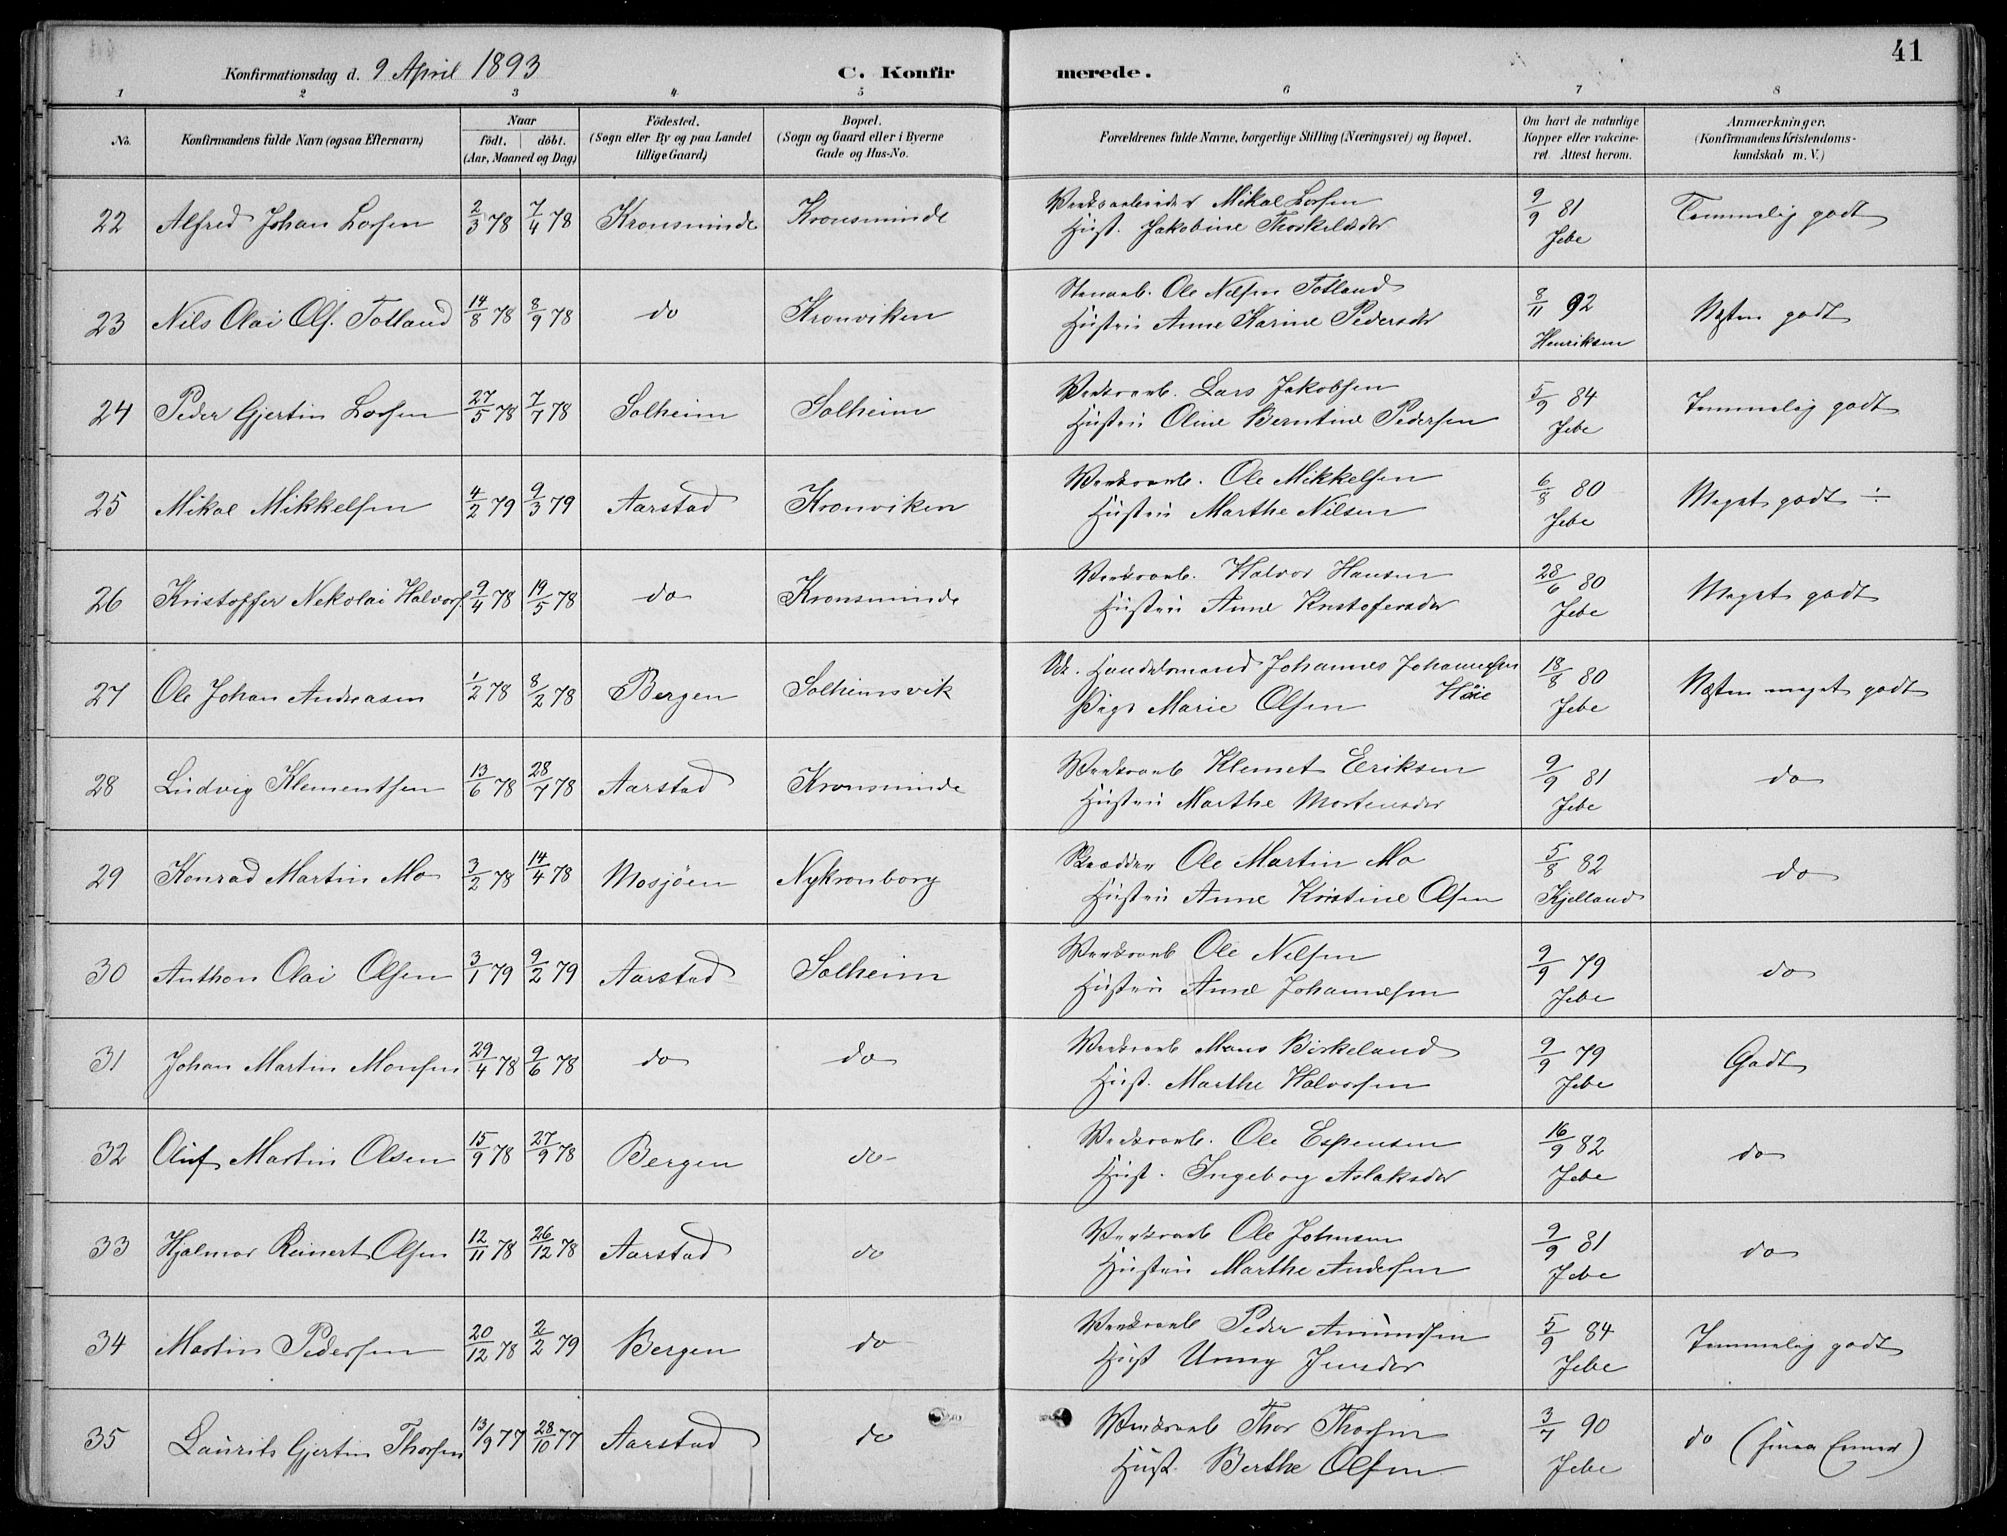 41
Konfirmationsdag d. 9 April 1893 C. Konfirmerede.
1 2 3 4 5 6 7 8
No. Konfirmandens fulde Navn (ogsaa Efternavn) Naar födt. döbt. (Aar, Maaned og Dag) Födested. (Sogn eller By og paa Landet tillige Gaard) Bopæl. (Sogn og Gaard eller i Byerne Gade og Hus-No. Forældrenes fulde Navne, borgerlige Stilling (Næringsvei) og Bopæl. Om havt de naturlige Kopper eller vakcineret. Attest herom. Anmærkninger. (Konfirmandens Kristendomskundskab m. V.)
22 Alfred Johan Larsen 2/3 78 7/4 78 Kronsminde Kronsminde Værksarbeider Mikal Larsen 9/9 81 Temmelig godt
Hust. Jakobine Thorkelsdr Jebe
23 Nils Olai Ols. Totland 14/8 78 8/9 78 do Kronviken Stenarb. Ole Nilsen Totland 8/11 92 Næsten godt
Hustru Anne Karine Pedersdr Henriksen
24 Peder Gjertin Larsen 27/5 78 7/7 78 Solheim Solheim Værksarb. Lars Jakobsen 5/9 84 Temmelig godt
Hustru Oline Berntine Pedersen Jebe
25 Mikal Mikkelsen 4/2 79 9/3 79 Aarstad Kronviken Værksarb. Ole Mikkelsen 6/8 80 Meget godt ÷
Hustru Marthe Nilsen Jebe
26 Kristoffer Nekolai Halvors 9/4 78 19/5 78 do Kronsminde Værksarb. Halvor Hansen 28/6 80 Meget godt
Hustru Anne Kristofersdr Jebe
27 Ole Johan Andreasen 1/2 78 8/2 78 Bergen Solheimsvik Handelsmand Johannes Johannesen Høie 18/8 80 Næsten meget godt
Pige Marie Olsen Jebe
28 Ludvig Klementsen 13/6 78 28/7 78 Aarstad Kronsminde Værksarb Klemet Eriksen 9/9 81 do
Hustru Marthe Mortensdr Jebe
29 Konrad Martin Mo 3/2 78 14/4 78 Mosjöen Nykronborg Skrædder Ole Martin Mo 5/8 82 do
Hustru Anne Kristine Olsen Kjelland
30 Anthon Olai Olsen 3/1 79 9/2 79 Aarstad Solheim Værksarb Ole Nilsen 9/9 79 do
Hustru Anne Johannesen Jebe
31 Johan Martin Monsen 29/4 78 9/6 78 do do Værksarb Mons Birkeland 9/9 79 Godt
Hust. Marthe Halvorsen Jebe
32 Oluf Martin Olsen 15/9 78 27/9 78 Bergen do Værksarb. Ole Espensen 16/9 82 do
Hust. Ingeborg Aslaksdr Jebe
33 Hjalmar Reinert Olsen 12/11 78 26/12 78 Aarstad do Værksarb Ole Johnsen 9/9 81 do
Hustru Marthe Andersen Jebe
34 Martin Pedersen 20/12 78 2/2 79 Bergen do Værksarb Peder Amundsen 5/9 84 Temmelig godt
Hust Unny Jensdr Jebe
35 Laurits Gjertin Thorsen 13/9 77 28/10 77 Aarstad do Værksarb Thor Thorsen 3/7 90 do
Hust. Berthe Olsen Jebe